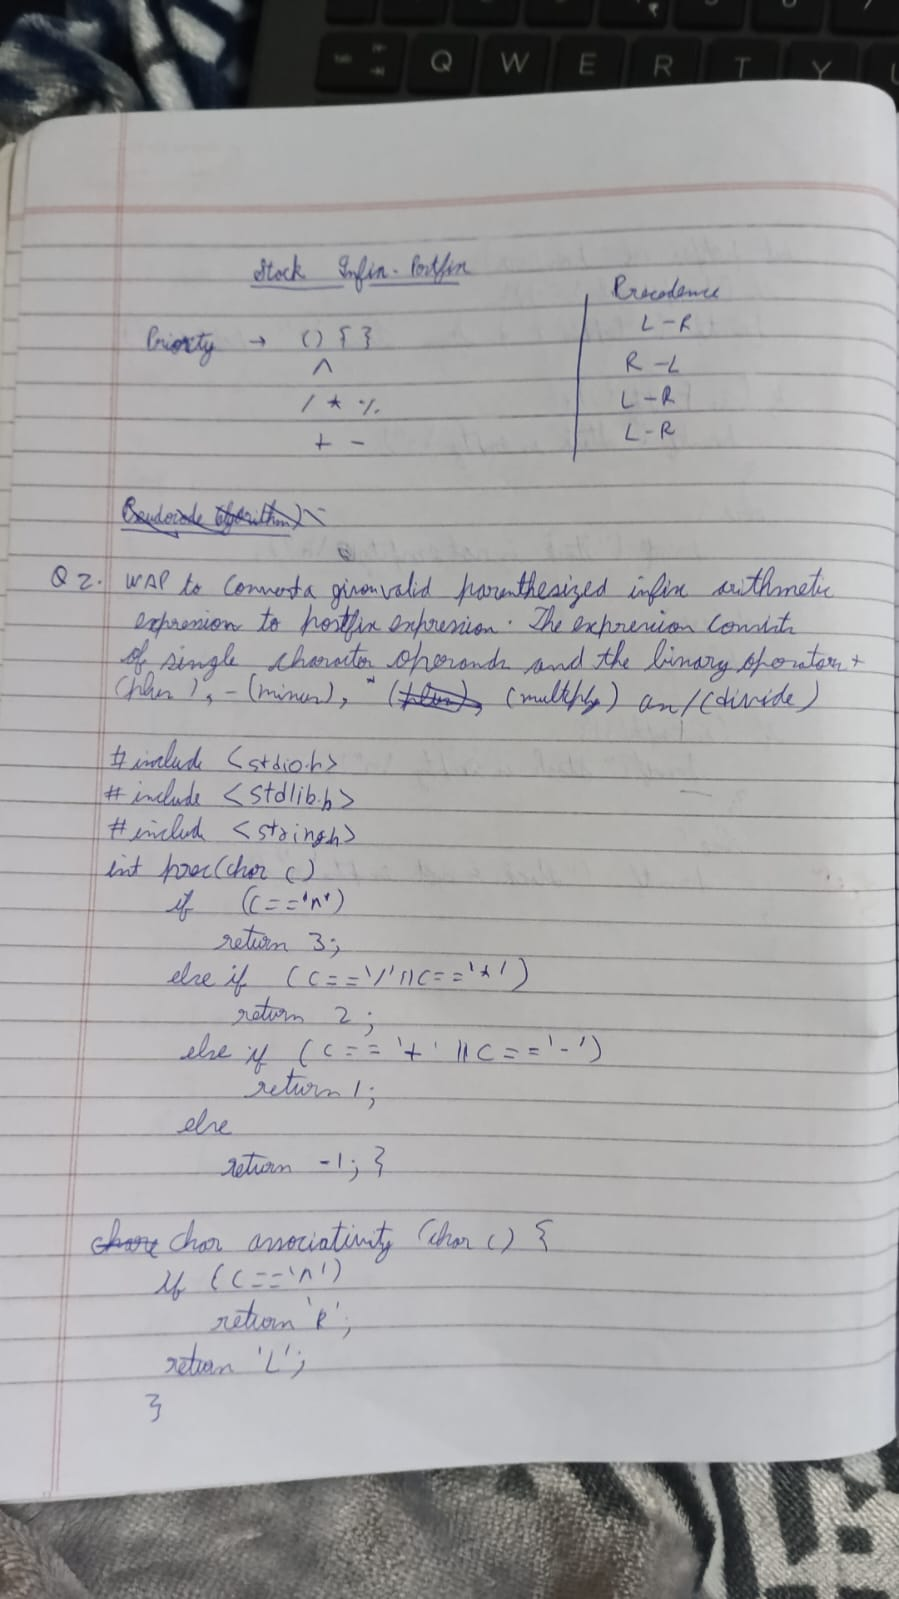 Q W E R T Y U
Stack Infix - Postfix
Precedence
Priority → () { } L-R
^ R-L
/ * % L-R
+ - L-R
Pseudocode Algorithm
Q 2. WAP to convert a given valid parenthesized infix arithmetic
expression to postfix expression. The expression consists
of single character operands and the binary operators +
(plus), - (minus), * (plus), (multiply) an / (divide)
# include <stdio.h>
# include <stdlib.h>
# include <string.h>
int prec(char c)
if (c=='^')
return 3;
else if (c=='/'||c=='*')
return 2;
else if (c=='+' || c=='-')
return 1;
else
return -1; }
char associativity (char c) {
if (c=='^')
return 'R';
return 'L';
}